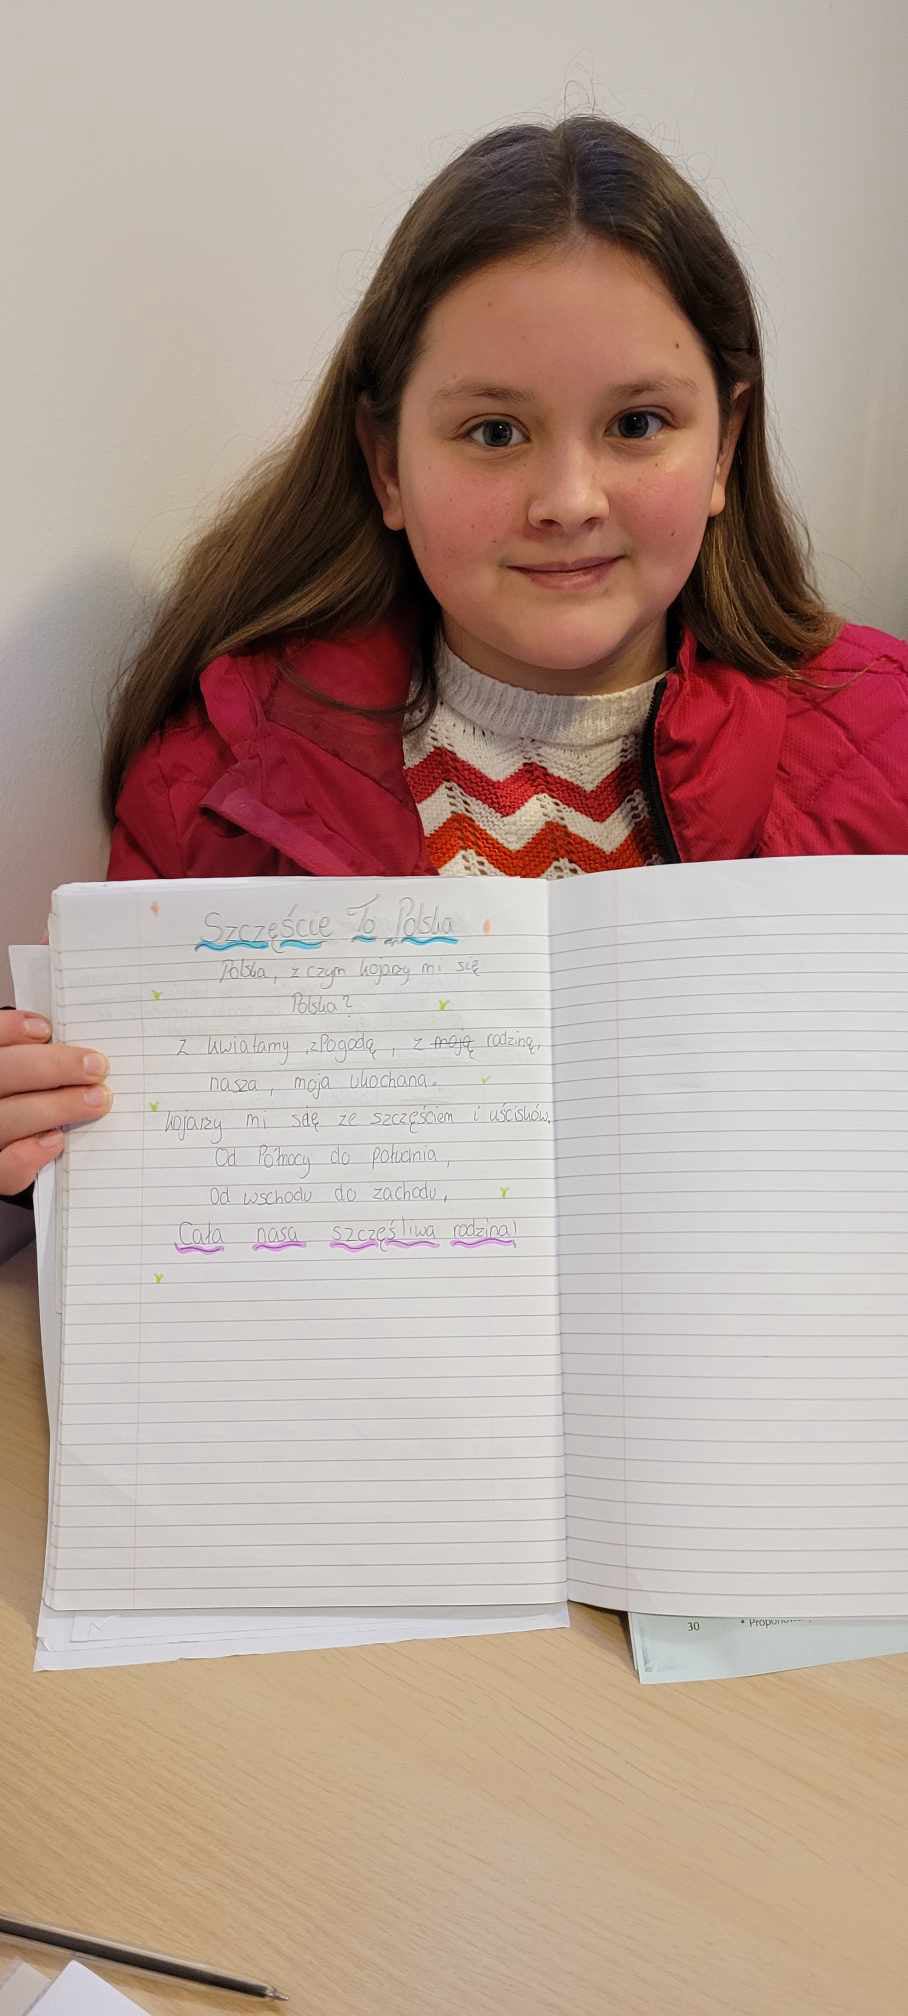 Szczęście To Polska
Polska, z czym kojarzy mi się
Polska?
z kwiatamy, z Pogodę, z moją rodziną,
nasza, moja ukochana.
kojarzy mi się ze szczęściem i uścisków.
Od Północy do południa,
Od wschodu do zachodu,
Cała nasa szczęśliwa rodzina!
30